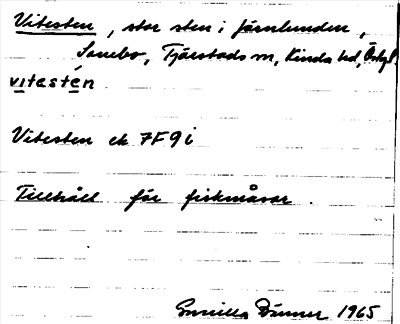 Vitesten, stor sten i Järnlunden,
Sonebo, Tjärstads sn, Kinda hd, Östgl.
vitestén
Vitesten ek 7F9i
Tillhåll för fiskmåsar.
Gunilla Dänner 1965